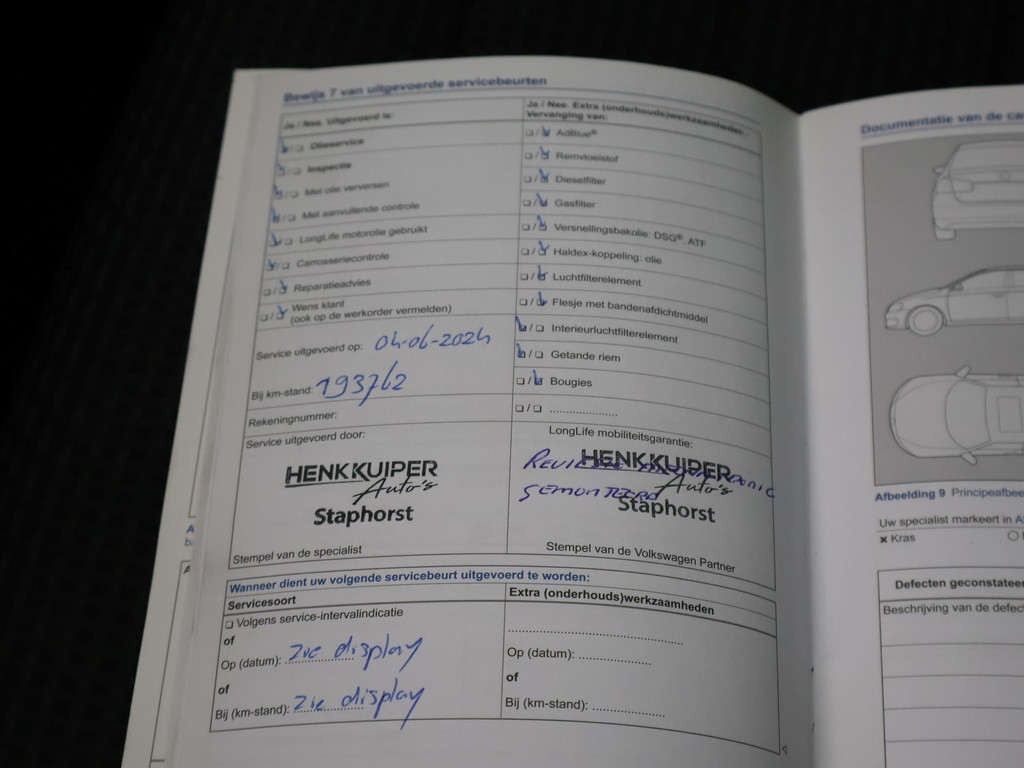 Bewijs 7 van uitgevoerde servicebeurten
Ja / Nee. Uitgevoerd is:
Olieservice
Inspectie
Met olie verversen
Met aanvullende controle
LongLife motorolie gebruikt
Carrosseriecontrole
Reparatieadvies
Wens klant
(ook op de werkorder vermelden)
Service uitgevoerd op: 04-06-2024
Bij km-stand: 193762
Rekeningnummer:
Service uitgevoerd door:
HENK KUIPER
Auto's
Staphorst
Stempel van de specialist
Ja / Nee. Extra (onderhouds)werkzaamheden -
Vervanging van:
AdBlue®
Remvloeistof
Dieselfilter
Gasfilter
Versnellingsbakolie: DSG®, ATF
Haldex-koppeling: olie
Luchtfilterelement
Flesje met bandenafdichtmiddel
Interieurluchtfilterelement
Getande riem
Bougies
LongLife mobiliteitsgarantie:
HENK KUIPER
Auto's
Staphorst
Stempel van de Volkswagen Partner
Wanneer dient uw volgende servicebeurt uitgevoerd te worden:
Servicesoort
Volgens service-intervalindicatie
of
Op (datum): zie display
of
Bij (km-stand): zie display
Extra (onderhouds)werkzaamheden
Op (datum):
of
Bij (km-stand):
Documentatie van de
Afbeelding 9 Principeafbee
Uw specialist markeert in
× Kras
Defecten geconstatee
Beschrijving van de defec